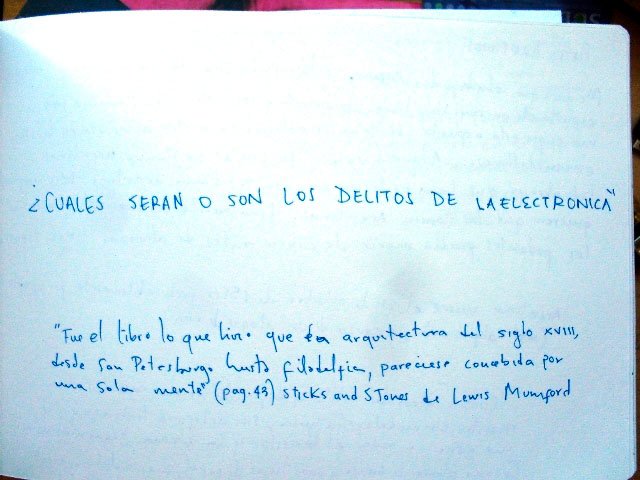 ¿CUALES SERAN O SON LOS DELITOS DE LA ELECTRONICA"
"Fue el libro lo que hizo que la arquitectura del siglo XVIII,
desde San Petersburgo hasta filadelfia, pareciese concebida por
una sola mente" (pag. 43) sticks and STones de Lewis Mumford